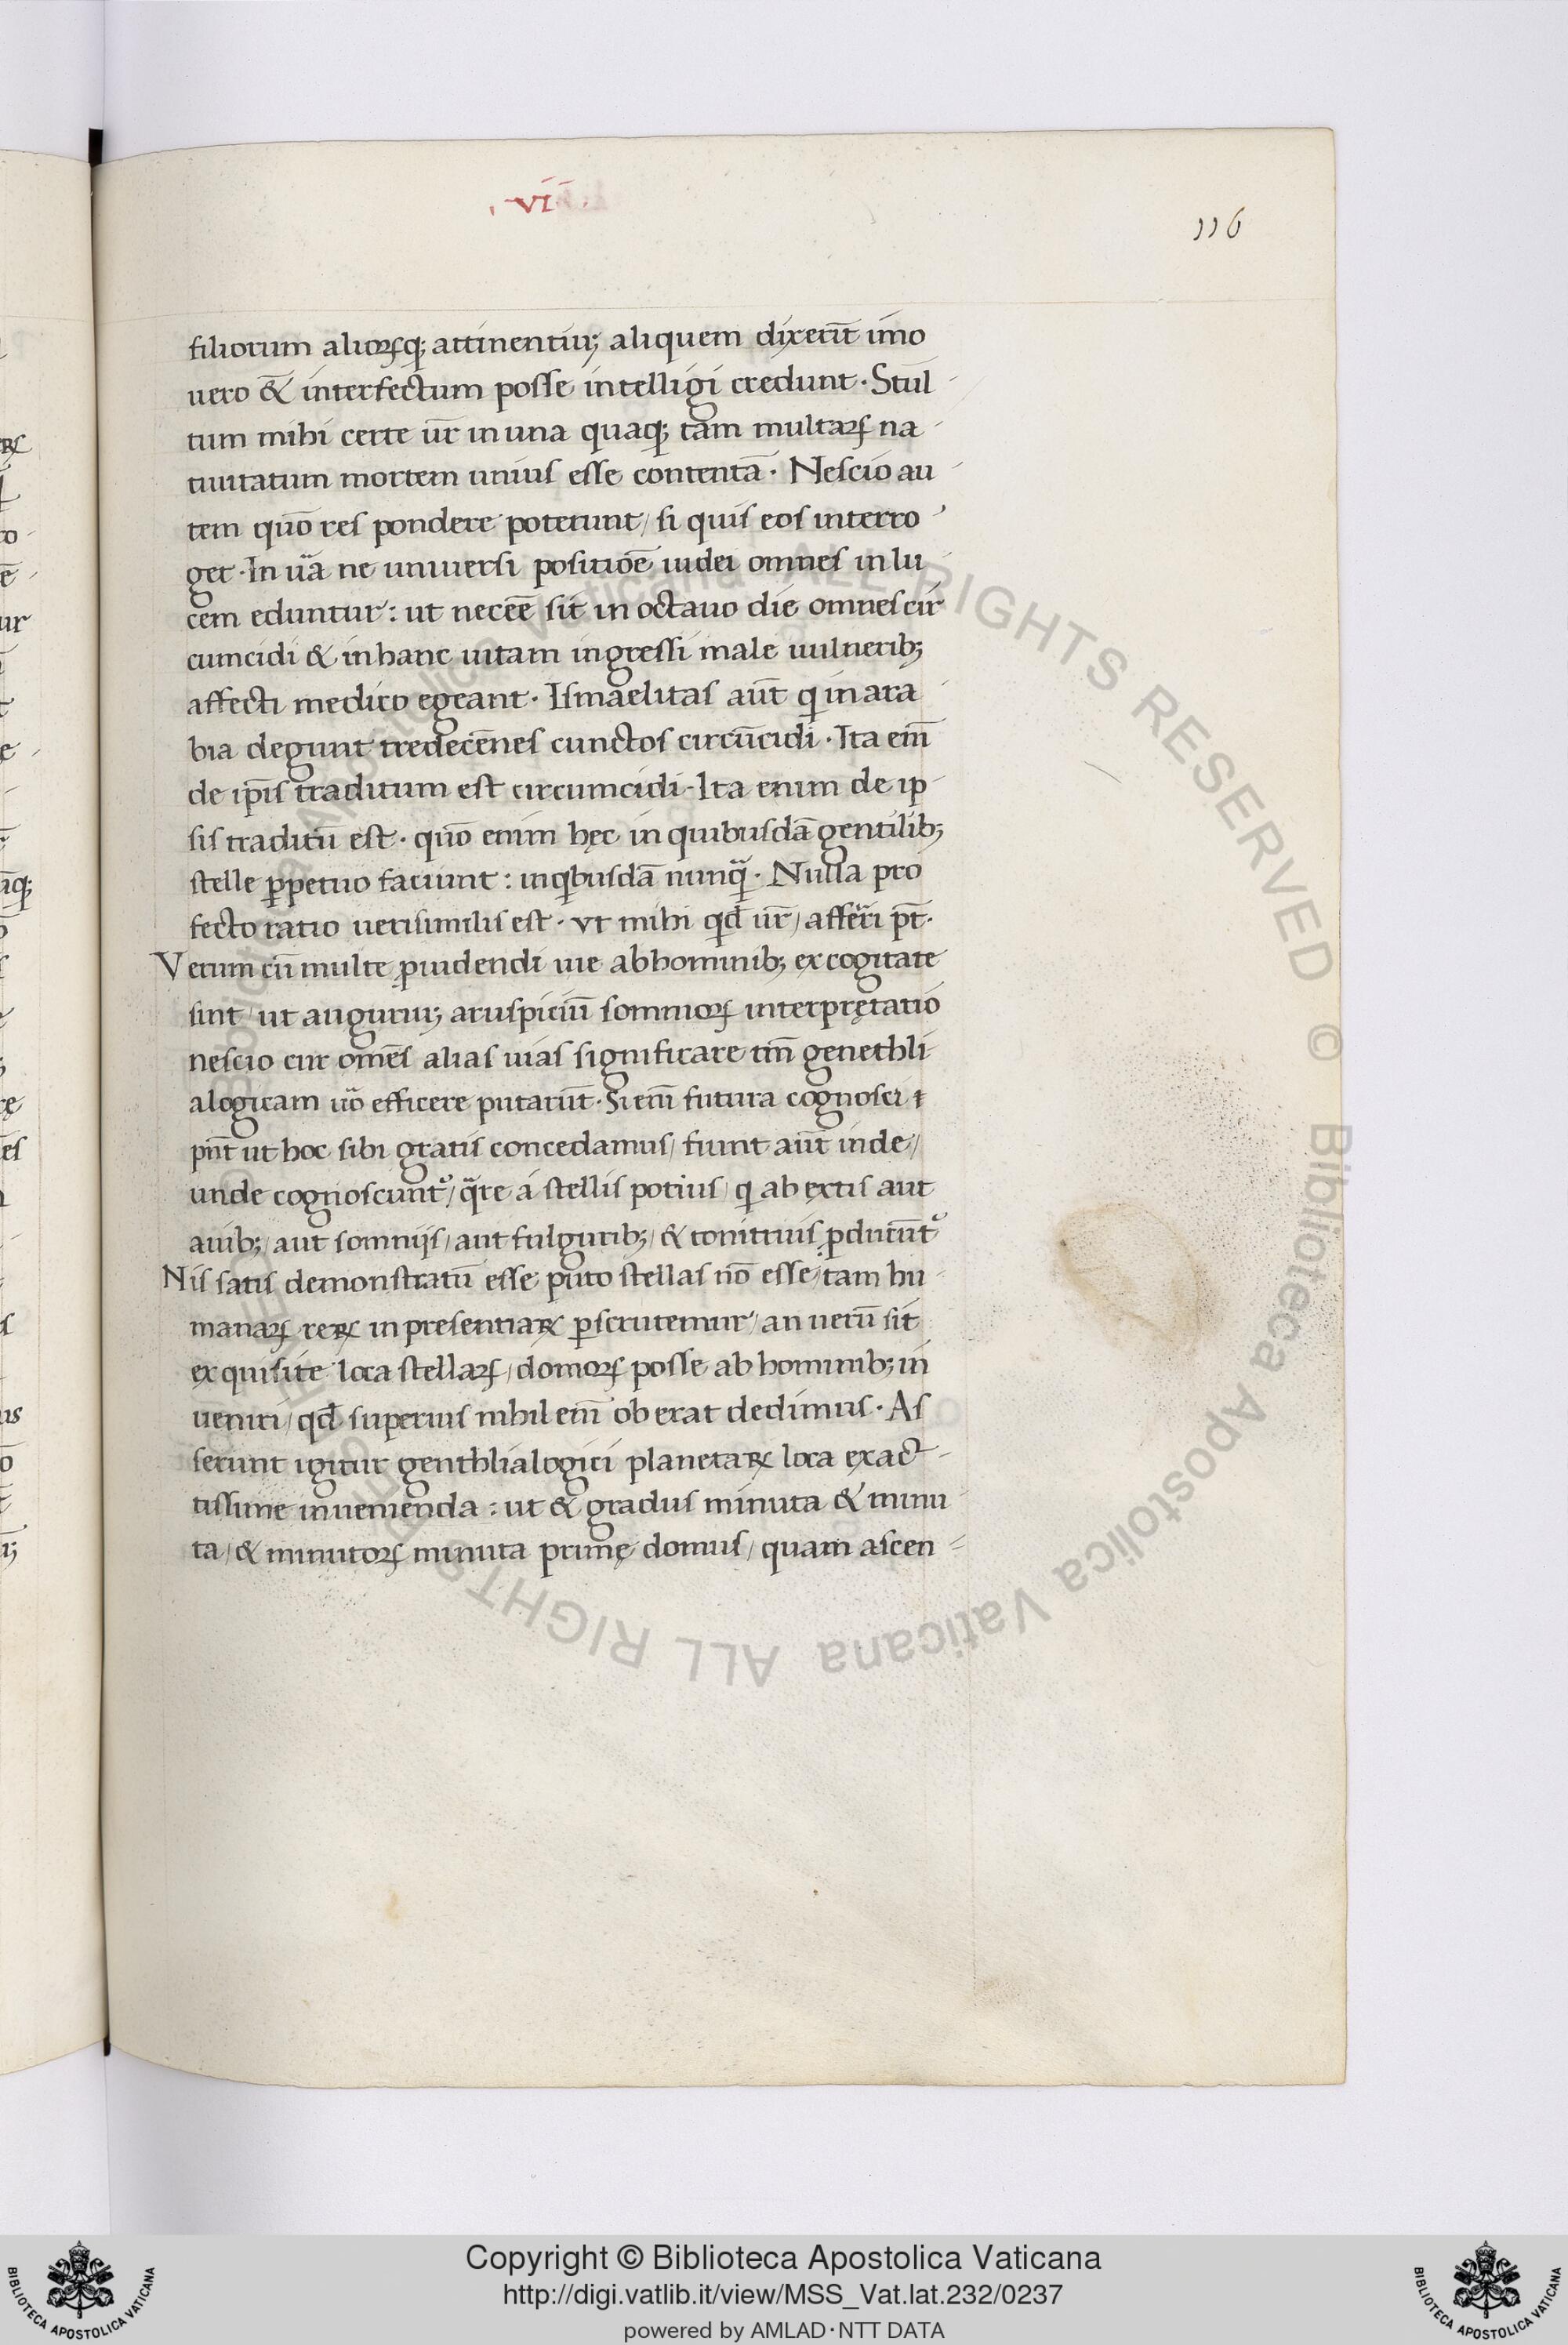 · VI ·
116
filiorum alioꝝqꝫ attinentiuꝫ aliquem dixerīt imo
uero & interfectum posse intelligi credunt · Stul
tum mihi certe ur̄ in una quaqꝫ tam multaꝝ na
tiuitatum mortem unius esse contentā · Nescio au
tem quō res pondere poterunt / si quis eos interro
get · In uā ne uniuersi positiōe iudei omnes in lu
cem eduntur : ut neceē sit in octauo die omnes cir
cumcidi & in hanc uitam ingressi male uulneribꝫ
affecti medico egeant · Ismaelitas aūt qi in ara
bia degunt tredecēnes cunctos circūcidi · Ita em̄
de ip̄is traditum est circumcidi · Ita enim de ip
sis traditū est · quō enim hęc in quibusdā gentilibꝫ
stelle ꝑpetuo faciunt : in qibusdā nunqā · Nulla pro
fecto ratio uerisimilis est · vt mihi qd̄ ur̄ / afferri pt̄ ·
Verum cū multe ꝓuidendi uie ab hominibꝫ excogitate
sint / ut auguriuꝫ aruspiciū somnioꝝ interpretatio
nescio cur omēs alias uias significare tm̄ genethli
alogicam uō efficere putarūt · Si em̄ futura cognosci
pn̄t ut hoc sibi gratis concedamus / fiunt aūt inde /
unde cognoscuntᷣ / qare a stellis potius / q ab extis aut
auibꝫ / aut somnijs / aut fulguribꝫ / & tonitruis ꝑducūtᷣ
Nis satis demonstratū esse puto stellas nō esse / tam hu
manaꝝ reꝝ in presentiaꝝ ꝑscrutemur / an uerū sit
exquisite loca stellaꝝ / domoꝝ posse ab hominibꝫ in
ueniri / qd̄ superius nihil em̄ oberat dedimus · As
serunt igitur genthlialogici planetaꝝ loca exact
tissime inuenienda : ut & gradus minuta & minu
ta / & minutoꝝ minuta primę domus / quam ascen
Copyright © Biblioteca Apostolica Vaticana
http://digi.vatlib.it/view/MSS_Vat.lat.232/0237
powered by AMLAD·NTT DATA
BIBLIOTECA APOSTOLICA VATICANA
BIBLIOTECA APOSTOLICA VATICANA
© Biblioteca Apostolica Vaticana ALL RIGHTS RESERVED
© Biblioteca Apostolica Vaticana ALL RIGHTS RESERVED